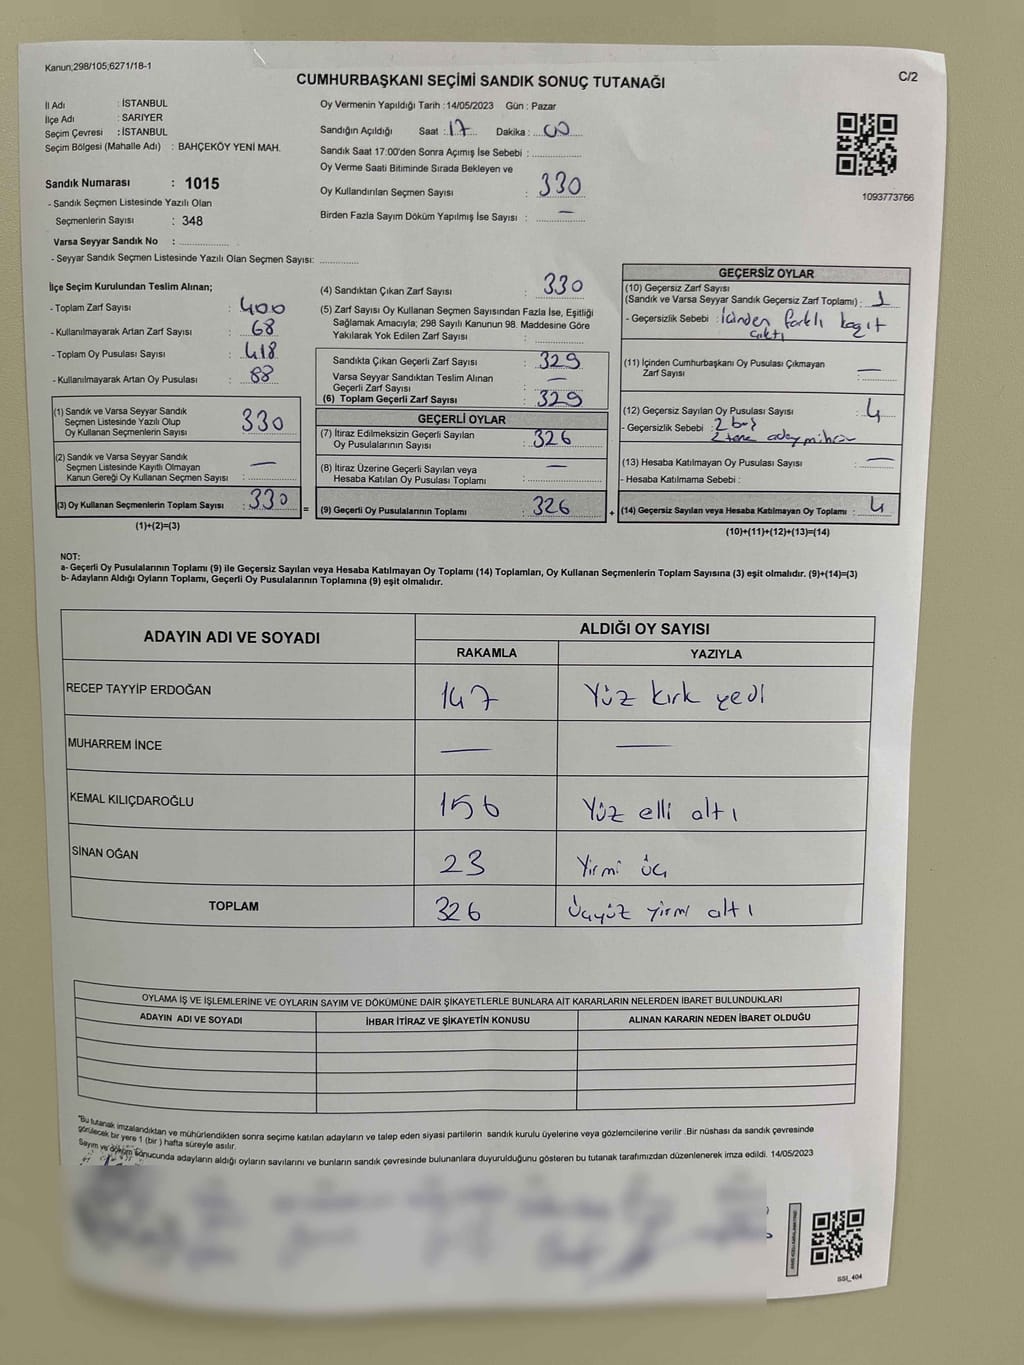 Kanun,298/105,6271/18-1
C/2
CUMHURBAŞKANI SEÇİMİ SANDIK SONUÇ TUTANAĞI
İl Adı : İSTANBUL
İlçe Adı : SARIYER
Seçim Çevresi : İSTANBUL
Seçim Bölgesi (Mahalle Adı) : BAHÇEKÖY YENİ MAH.
Sandık Numarası : 1015
- Sandık Seçmen Listesinde Yazılı Olan
Seçmenlerin Sayısı : 348
Varsa Seyyar Sandık No :
- Seyyar Sandık Seçmen Listesinde Yazılı Olan Seçmen Sayısı:
Oy Vermenin Yapıldığı Tarih :14/05/2023 Gün : Pazar
Sandığın Açıldığı Saat : 17 Dakika : 00
Sandık Saat 17:00'den Sonra Açımış İse Sebebi :
Oy Verme Saati Bitiminde Sırada Bekleyen ve
Oy Kullandırılan Seçmen Sayısı : 330
Birden Fazla Sayım Döküm Yapılmış İse Sayısı : —
1093773766
İlçe Seçim Kurulundan Teslim Alınan;
- Toplam Zarf Sayısı : 400
- Kullanılmayarak Artan Zarf Sayısı : 68
- Toplam Oy Pusulası Sayısı : 418
- Kullanılmayarak Artan Oy Pusulası : 88
(1) Sandık ve Varsa Seyyar Sandık
Seçmen Listesinde Yazılı Olup
Oy Kullanan Seçmenlerin Sayısı 330
(2) Sandık ve Varsa Seyyar Sandık
Seçmen Listesinde Kayıtlı Olmayan
Kanun Gereği Oy Kullanan Seçmen Sayısı : —
(3) Oy Kullanan Seçmenlerin Toplam Sayısı : 330 =
(1)+(2)=(3)
(4) Sandıktan Çıkan Zarf Sayısı : 330
(5) Zarf Sayısı Oy Kullanan Seçmen Sayısından Fazla İse, Eşitliği
Sağlamak Amacıyla; 298 Sayılı Kanunun 98. Maddesine Göre
Yakılarak Yok Edilen Zarf Sayısı :
Sandıkta Çıkan Geçerli Zarf Sayısı : 329
Varsa Seyyar Sandıktan Teslim Alınan
Geçerli Zarf Sayısı : —
(6) Toplam Geçerli Zarf Sayısı : 329
GEÇERLİ OYLAR
(7) İtiraz Edilmeksizin Geçerli Sayılan
Oy Pusulalarının Sayısı : 326
(8) İtiraz Üzerine Geçerli Sayılan veya
Hesaba Katılan Oy Pusulası Toplamı : —
(9) Geçerli Oy Pusulalarının Toplamı : 326 +
GEÇERSİZ OYLAR
(10) Geçersiz Zarf Sayısı
(Sandık ve Varsa Seyyar Sandık Geçersiz Zarf Toplamı) : 1
- Geçersizlik Sebebi : İçinden farklı kağıt
çıktı
(11) İçinden Cumhurbaşkanı Oy Pusulası Çıkmayan
Zarf Sayısı : —
(12) Geçersiz Sayılan Oy Pusulası Sayısı : 4
- Geçersizlik Sebebi : 2 boş
2 tane aday mühür
(13) Hesaba Katılmayan Oy Pusulası Sayısı : —
- Hesaba Katılmama Sebebi :
(14) Geçersiz Sayılan veya Hesaba Katılmayan Oy Toplamı : 4
(10)+(11)+(12)+(13)=(14)
NOT:
a- Geçerli Oy Pusulalarının Toplamı (9) ile Geçersiz Sayılan veya Hesaba Katılmayan Oy Toplamı (14) Toplamları, Oy Kullanan Seçmenlerin Toplam Sayısına (3) eşit olmalıdır. (9)+(14)=(3)
b- Adayların Aldığı Oyların Toplamı, Geçerli Oy Pusulalarının Toplamına (9) eşit olmalıdır.
ADAYIN ADI VE SOYADI ALDIĞI OY SAYISI
RAKAMLA YAZIYLA
RECEP TAYYİP ERDOĞAN 147 Yüz kırk yedi
MUHARREM İNCE — —
KEMAL KILIÇDAROĞLU 156 Yüz elli altı
SİNAN OĞAN 23 Yirmi üç
TOPLAM 326 Üçyüz yirmi altı
OYLAMA İŞ VE İŞLEMLERİNE VE OYLARIN SAYIM VE DÖKÜMÜNE DAİR ŞİKAYETLERLE BUNLARA AİT KARARLARIN NELERDEN İBARET BULUNDUKLARI
ADAYIN ADI VE SOYADI İHBAR İTİRAZ VE ŞİKAYETİN KONUSU ALINAN KARARIN NEDEN İBARET OLDUĞU
"Bu tutanak imzalandıktan ve mühürlendikten sonra seçime katılan adayların ve talep eden siyasi partilerin sandık kurulu üyelerine veya gözlemcilerine verilir .Bir nüshası da sandık çevresinde
görülecek bir yere 1 (bir ) hafta süreyle asılır.
Sayım ve döküm sonucunda adayların aldığı oyların sayılarını ve bunların sandık çevresinde bulunanlara duyurulduğunu gösteren bu tutanak tarafımızdan düzenlenerek imza edildi. 14/05/2023
SSI_404